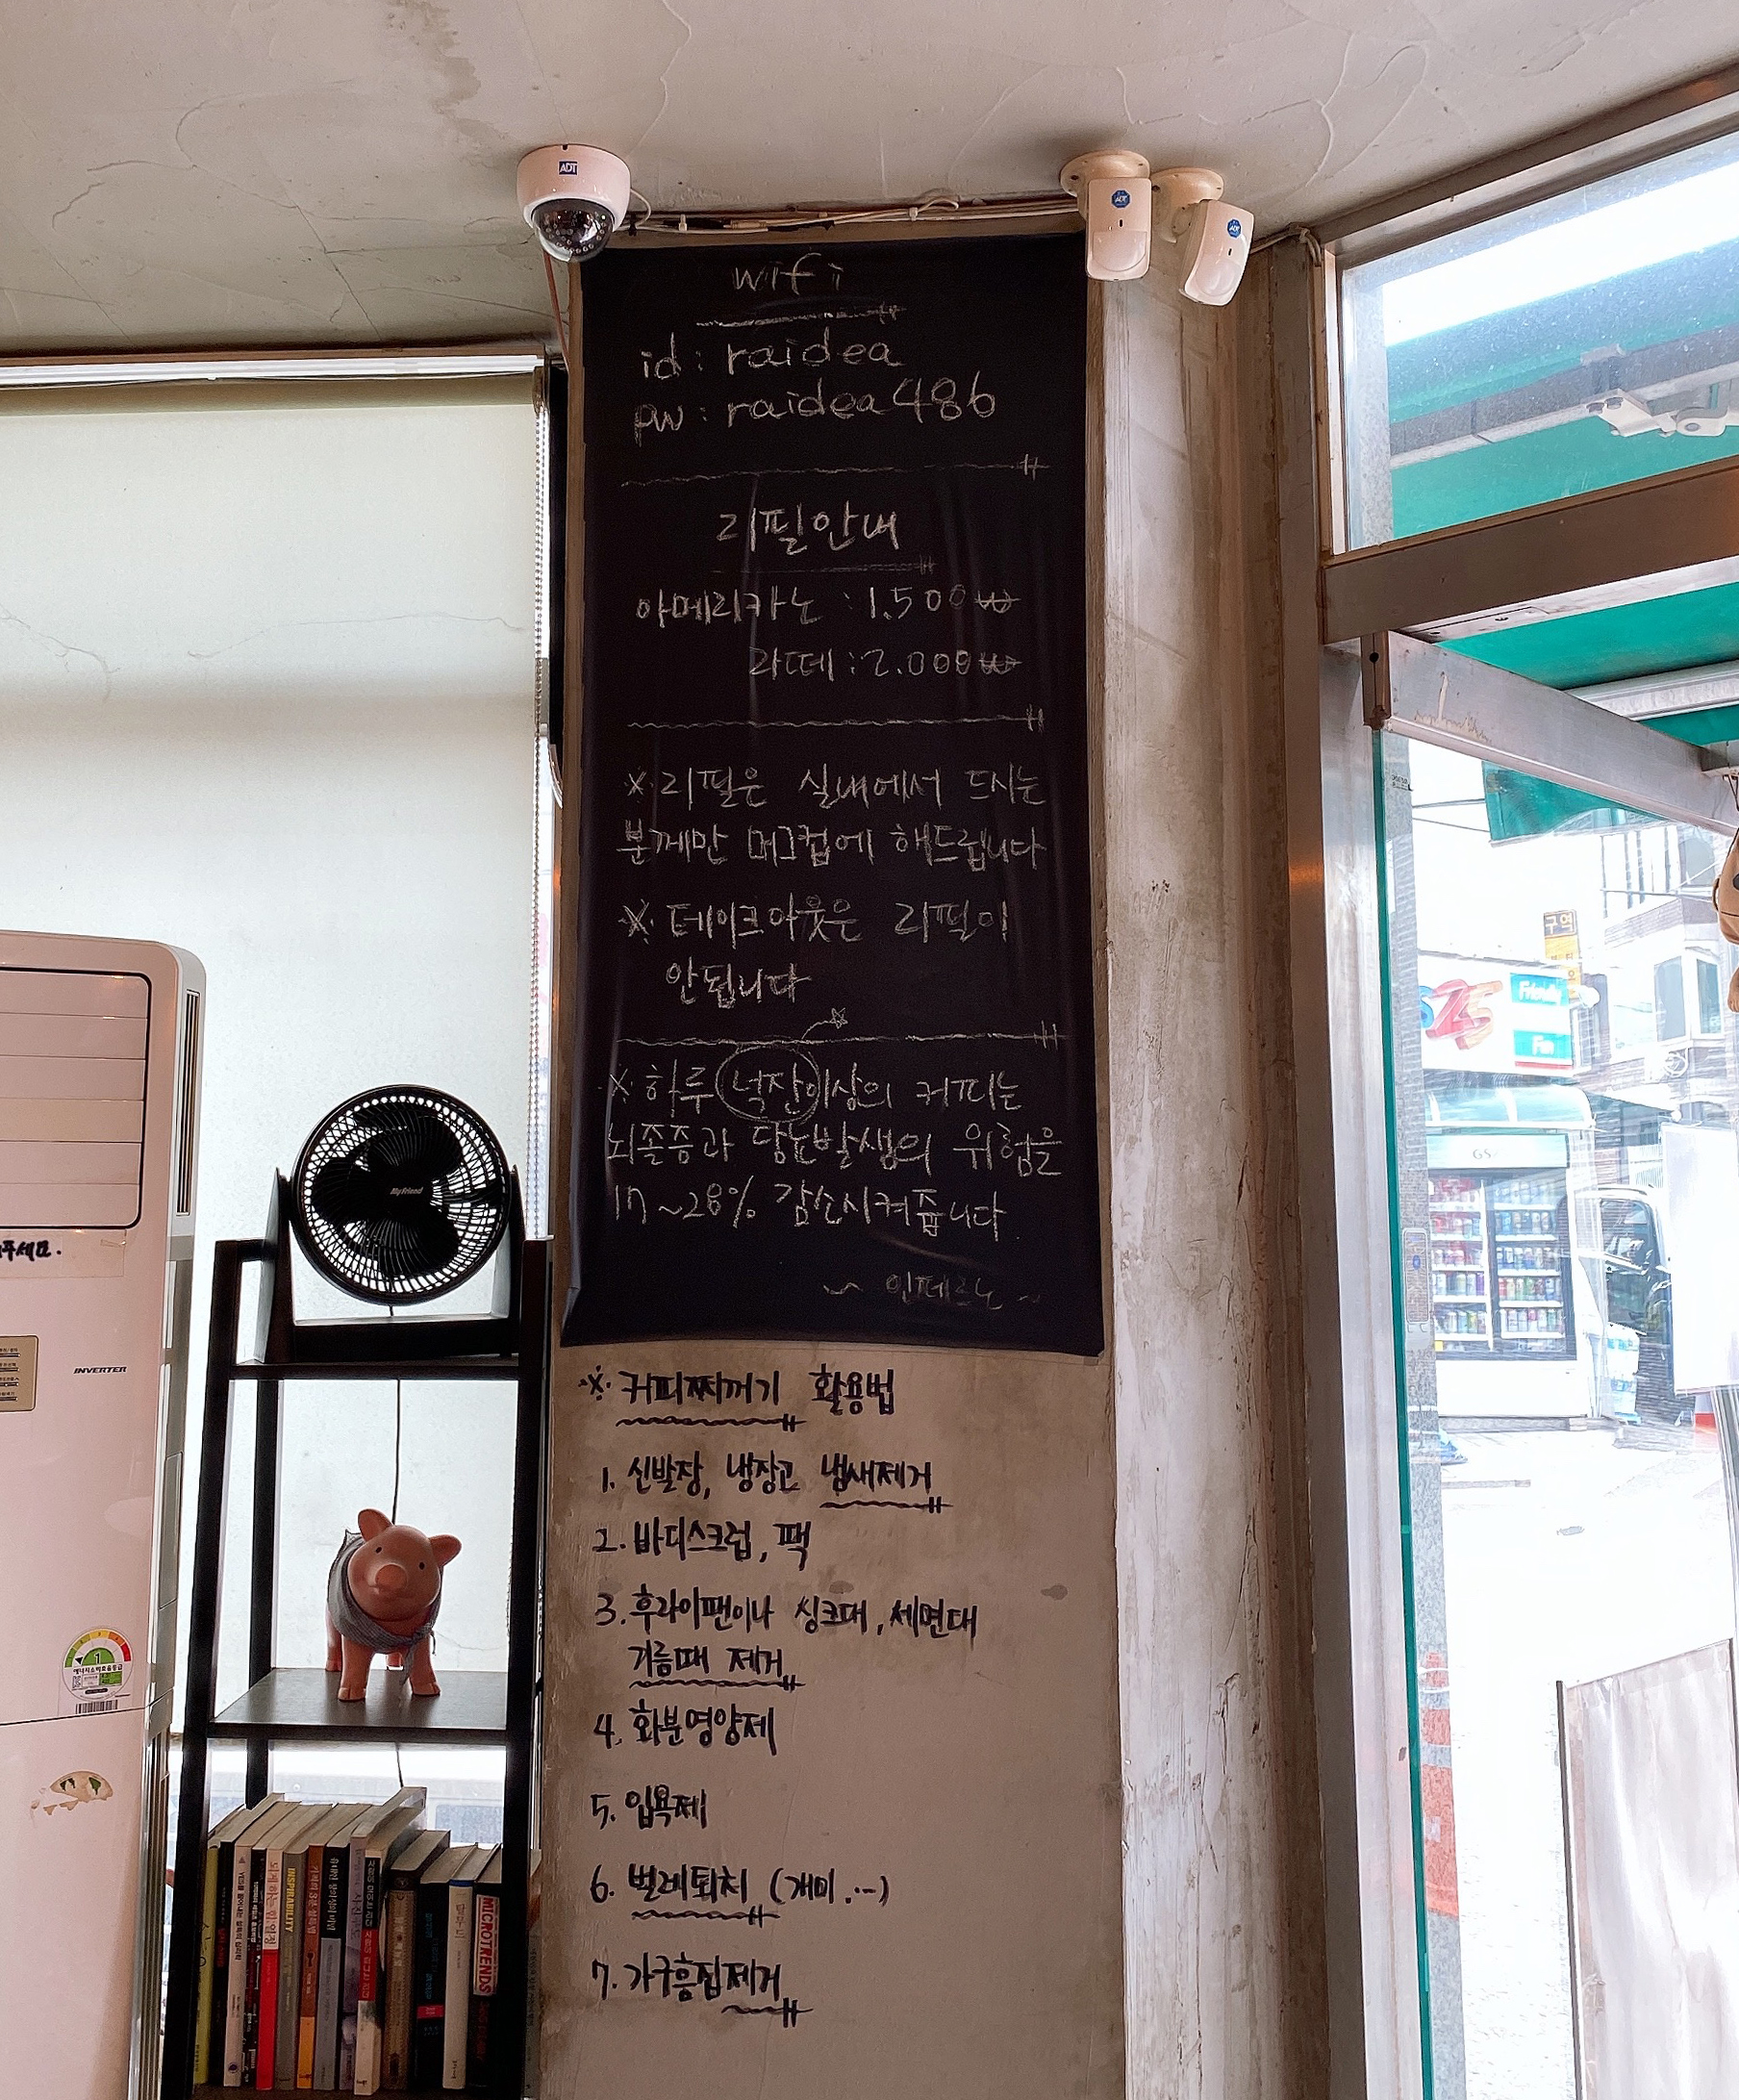 ADT
ADT
ADT
wifi
id : raidea
pw : raidea486
리필안내
아메리카노 : 1.500₩
라떼 : 2.000₩
※ 리필은 실내에서 드시는
분께만 머그컵에 해드립니다
※ 테이크아웃은 리필이
안됩니다
※ 하루 넉잔이상의 커피는
뇌졸증과 당뇨발생의 위험을
17~28% 감소시켜줍니다.
~ 인페르노 ~
※ 커피찌꺼기 활용법
1. 신발장, 냉장고 냄새제거
2. 바디스크럽, 팩
3. 후라이팬이나 싱크대, 세면대
기름때 제거
4. 화분영양제
5. 입욕제
6. 벌레퇴치 (개미...)
7. 가구흠집제거
My Friend
주세요.
INVERTER
1
INSPIRABILITY
탈무드
MICROTRENDS
구역
25
GS